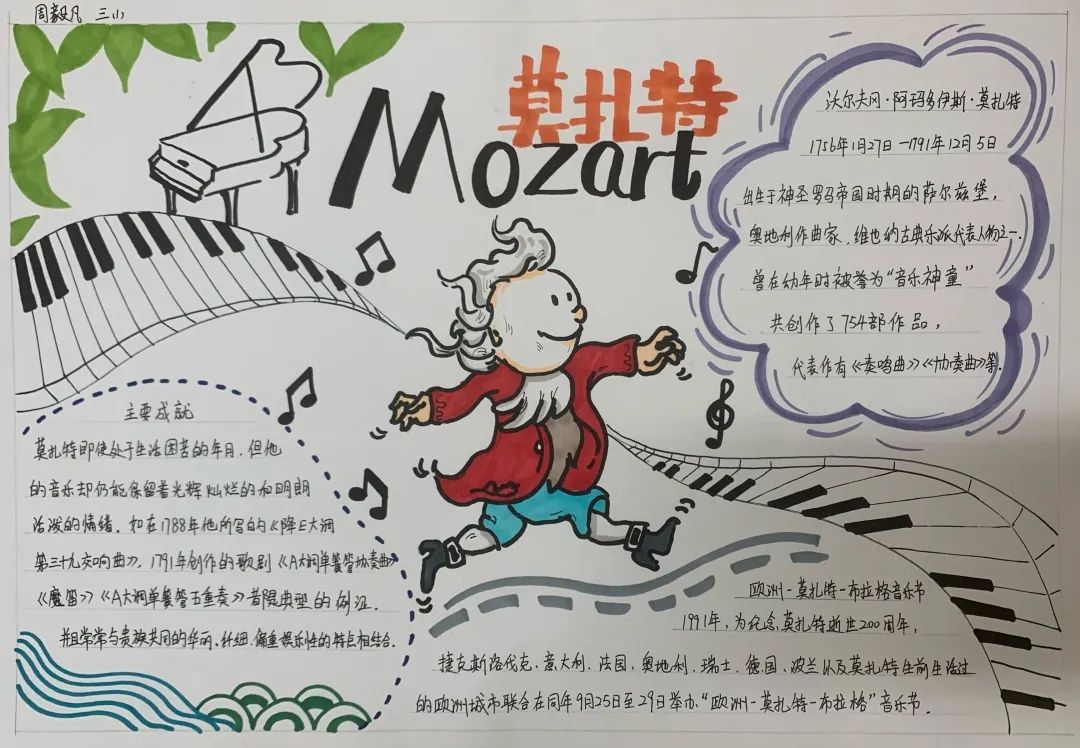 周毅凡 三小
莫扎特
Mozart
沃尔夫冈·阿玛多伊斯·莫扎特
1756年1月27日—1791年12月5日
出生于神圣罗马帝国时期的萨尔兹堡,
奥地利作曲家,维也纳古典乐派代表人物之一.
曾在幼年时被誉为“音乐神童”
共创作了754部作品,
代表作有《奏鸣曲》《协奏曲》等.
主要成就
莫扎特即使处于生活困苦的年月,但他
的音乐却仍能保留着光辉灿烂的和明朗
活泼的情绪.如在1788年他所写的《降E大调
第三十九交响曲》,1791年创作的歌剧《A大调单簧管协奏曲》
《魔笛》《A大调单簧管五重奏》皆是典型的例证.
并且常常与贵族共同的华丽、纤细、偏重娱乐性的特点相结合.
欧洲-莫扎特-布拉格音乐节
1991年,为纪念莫扎特逝世200周年,
捷克斯洛伐克、意大利、法国、奥地利、瑞士、德国、波兰以及莫扎特生前生活过
的欧洲城市联合在同年9月25日至29日举办“欧洲-莫扎特-布拉格”音乐节.